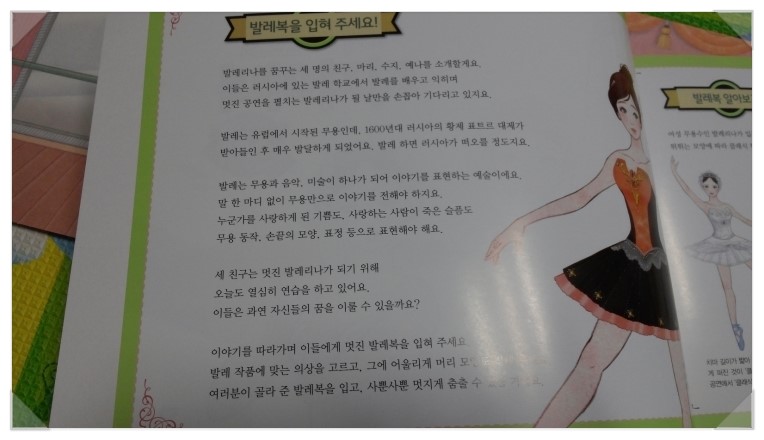 발레복을 입혀 주세요!
발레리나를 꿈꾸는 세 명의 친구, 마리, 수지, 예나를 소개할게요.
이들은 러시아에 있는 발레 학교에서 발레를 배우고 익히며
멋진 공연을 펼치는 발레리나가 될 날만을 손꼽아 기다리고 있지요.
발레는 유럽에서 시작된 무용인데, 1600년대 러시아의 황제 표트르 대제가
받아들인 후 매우 발달하게 되었어요. 발레 하면 러시아가 떠오를 정도지요.
발레는 무용과 음악, 미술이 하나가 되어 이야기를 표현하는 예술이에요.
말 한 마디 없이 무용만으로 이야기를 전해야 하지요.
누군가를 사랑하게 된 기쁨도, 사랑하는 사람이 죽은 슬픔도
무용 동작, 손끝의 모양, 표정 등으로 표현해야 해요.
세 친구는 멋진 발레리나가 되기 위해
오늘도 열심히 연습을 하고 있어요.
이들은 과연 자신들의 꿈을 이룰 수 있을까요?
이야기를 따라가며 이들에게 멋진 발레복을 입혀 주세요
발레 작품에 맞는 의상을 고르고, 그에 어울리게 머리
여러분이 골라 준 발레복을 입고, 사뿐사뿐 멋지게 춤출 수
발레복 알아보
여성 무용수인 발레리나가 입
퍼진 것이